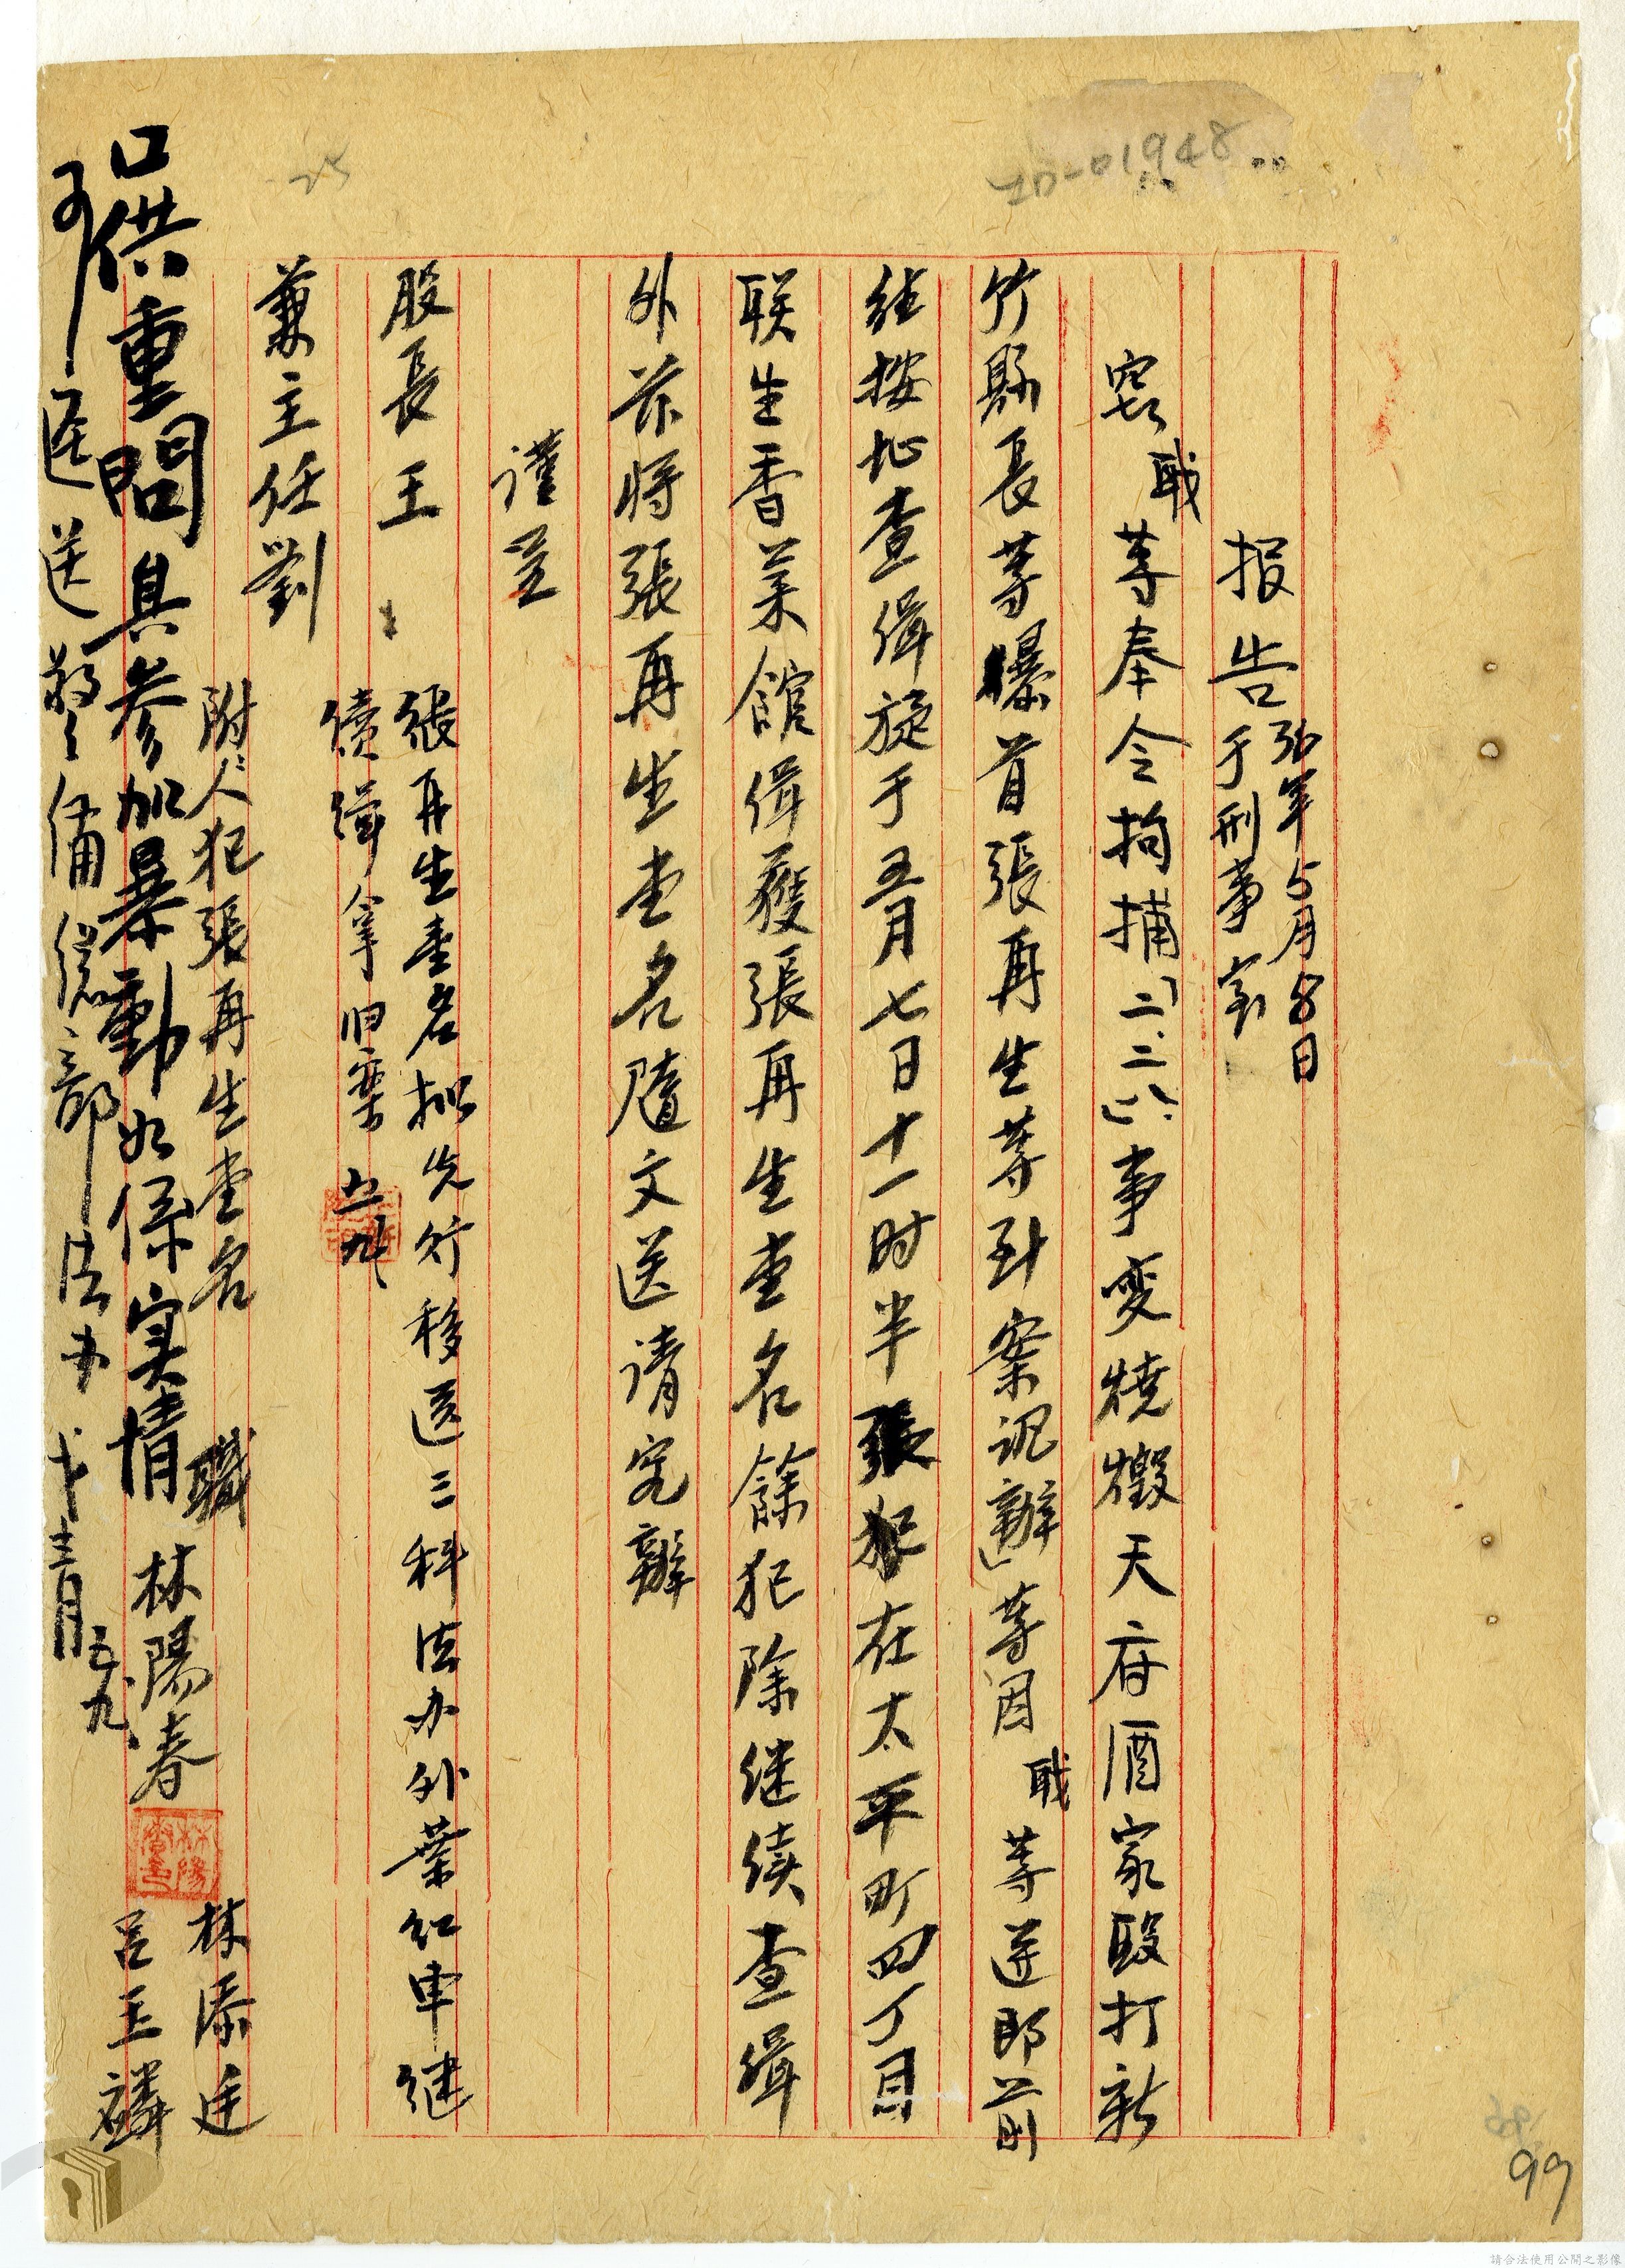 報告 36年5月8日
于刑事室
窃職等奉令拘捕「二、二八」事變燒燬天府酒家毆打新
竹縣長等暴首張再生等到案訊辦」等因職等遵即前
往按址查緝旋于五月七日十一时半張犯在太平町四丁目
联生香菜館緝獲張再生壹名餘犯除继续查緝
外茲將張再生壹名隨文送请究辦
謹呈
股長王
兼主任劉
張再生壹名拟先行移送三科法办外葉紅車继
續緝拿归案 五九
附：人犯張再生壹名
職 林陽春
林添廷
呂玉麟
口供重問真参加暴動如係实情
可匠送警備總部法办 五九
林陽春印
JD-01948
25
99
請合法使用公開之影像